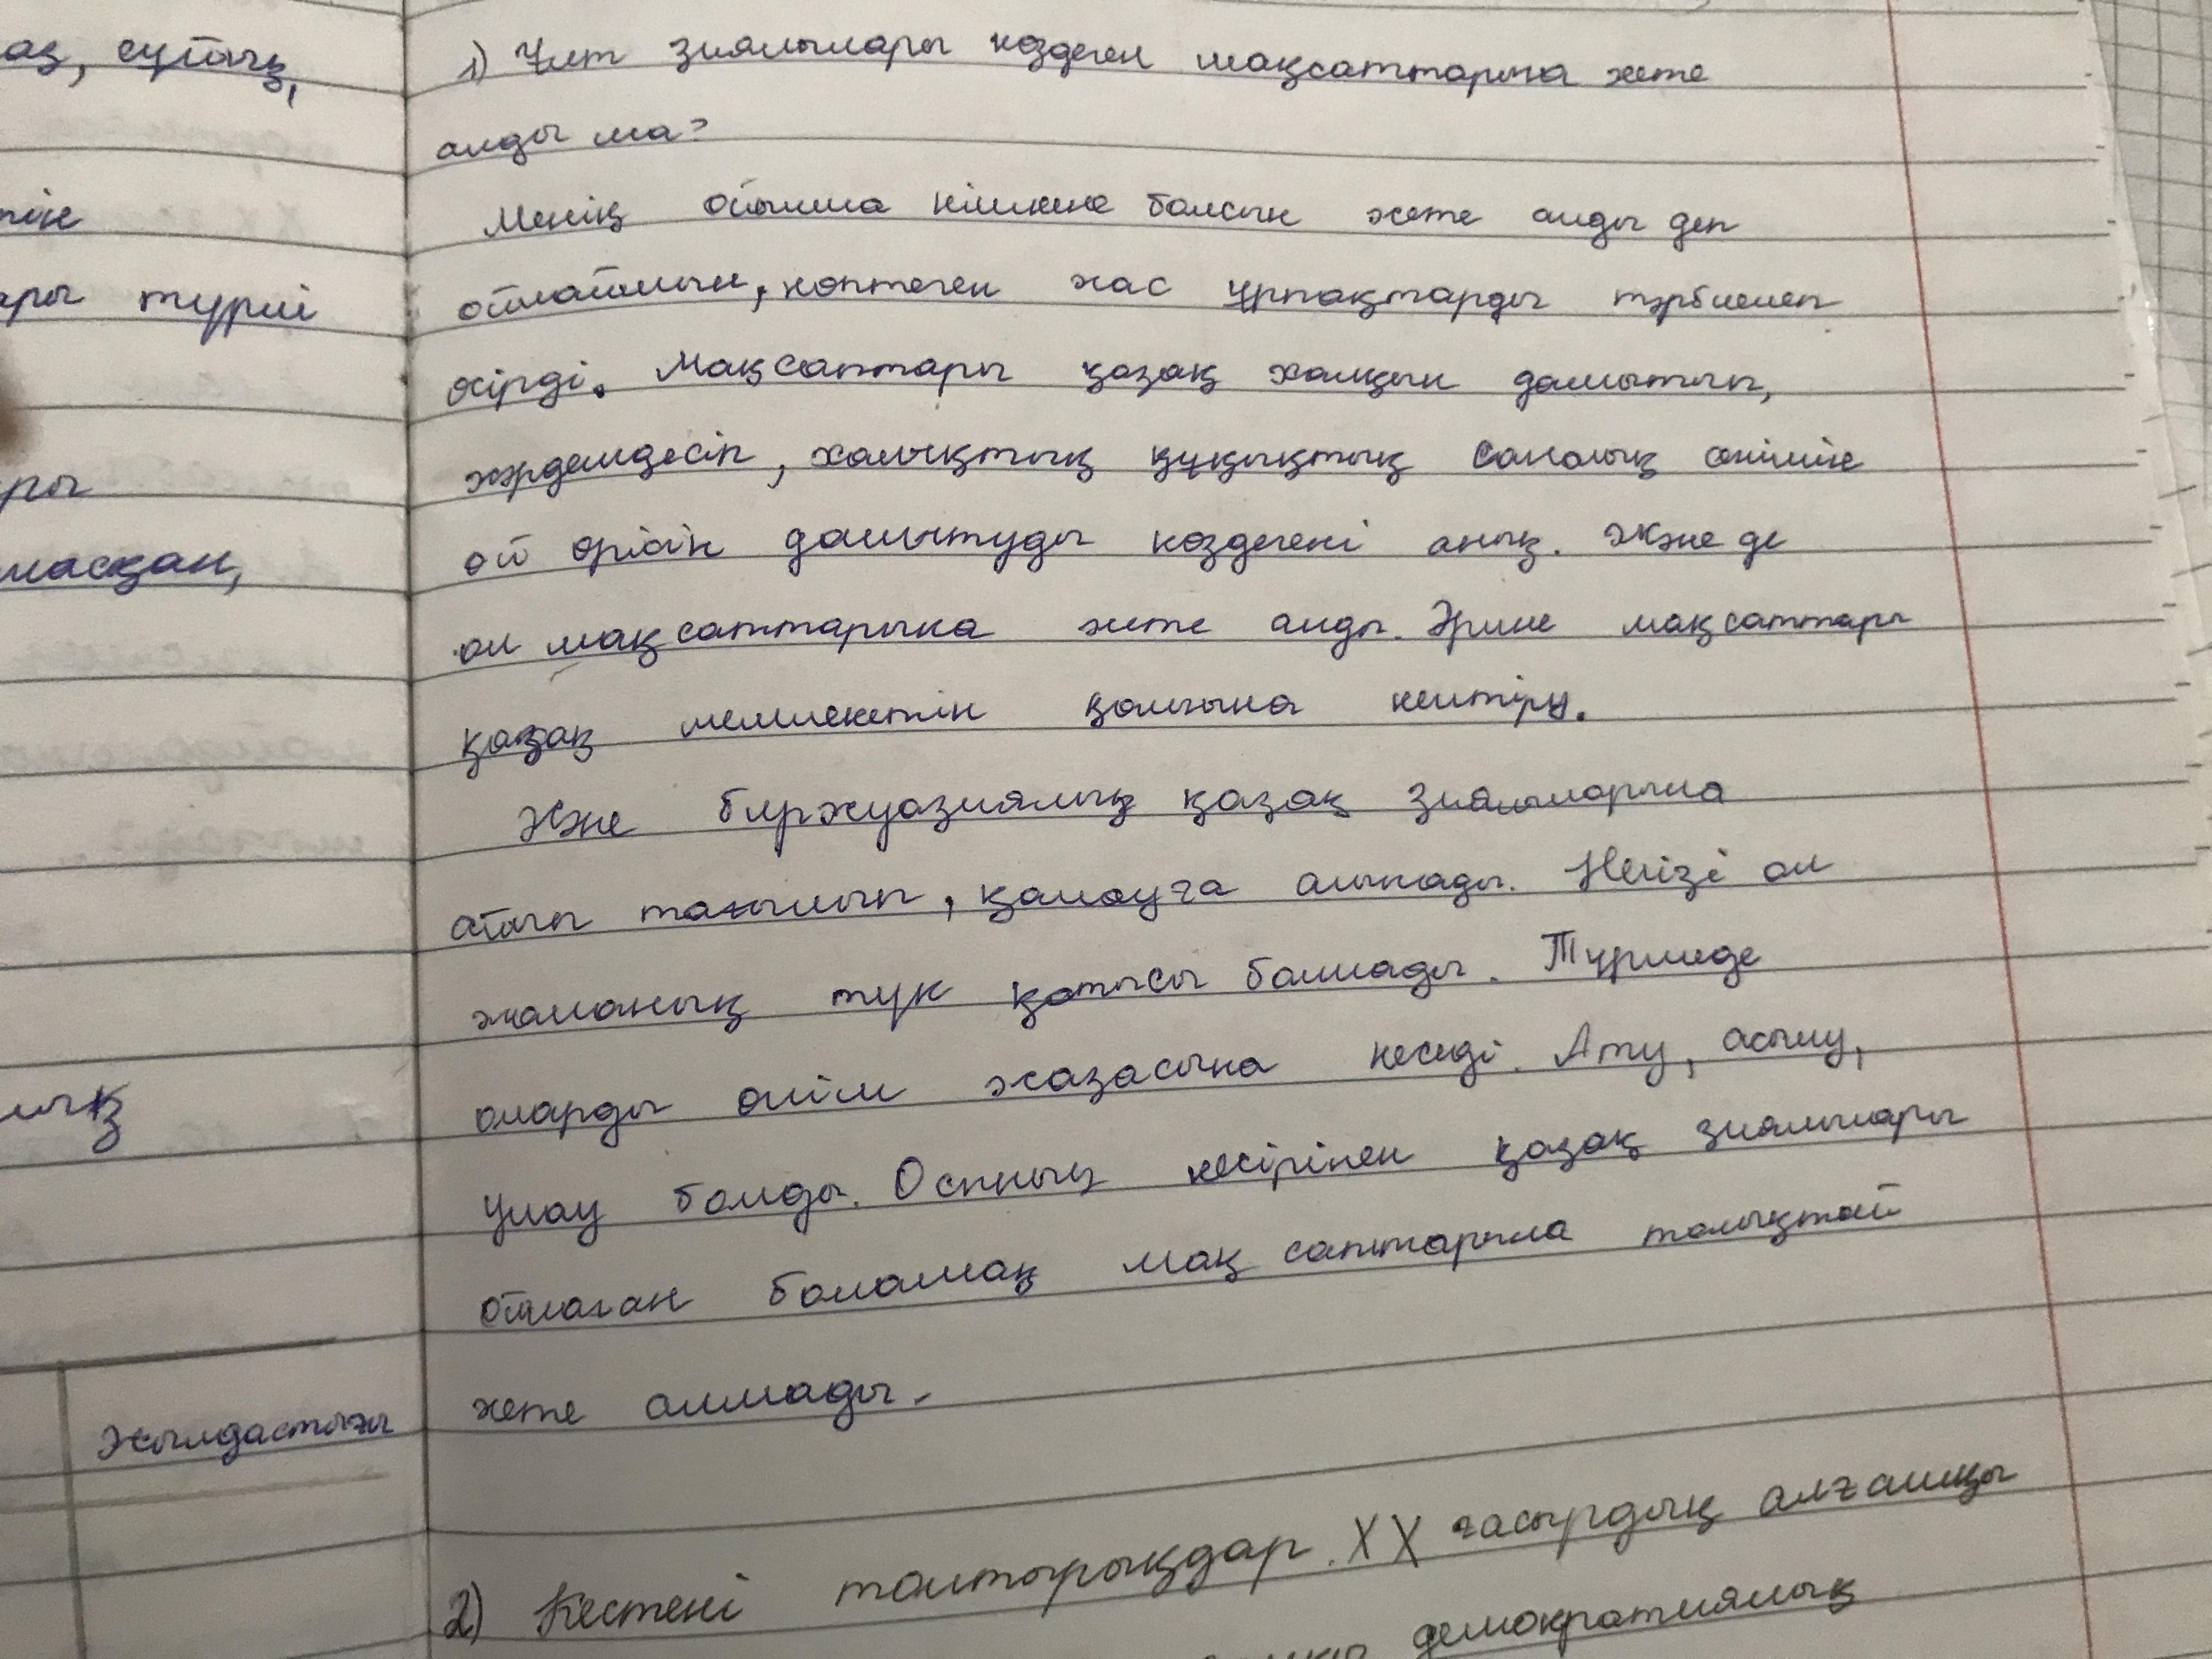 аз, сұйық,
тік
ары түрлі
ры
масқан,
лық
Жылдастығы
1) Ұлт зиялылары көздеген мақсаттарына жете
алды ма?
Менің ойымша кішкене болсын жете алды деп
ойлаймын, көптеген жас ұрпақтарды тәрбиелеп
өсірді. Мақсаттары қазақ халқын дамытып,
жәрдемдесіп, халықтың құқықтық саналық сенімін
ой өрісін дамытуды көздегені анық. Және де
ол мақсаттарына жете алды. Әрине мақсаттары
қазақ мемлекетін қалпына келтіру.
Және буржуазиялық қазақ зиялыларына
айып тағылып, қамауға алынады. Негізі ол
жаланың түк қатысы болмады. Түрмеде
оларды өлім жазасына кеседі. Ату, асылу,
улау болды. Осының кесірінен қазақ зиялылары
ойлаған болашақ мақсаттарына толықтай
жете алмады.
2) Кестені толтырыңдар. XX ғасырдың алғашқы
демократиялық